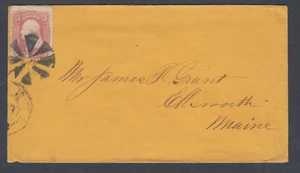 Mr James H Grant
Ellsworth
Maine